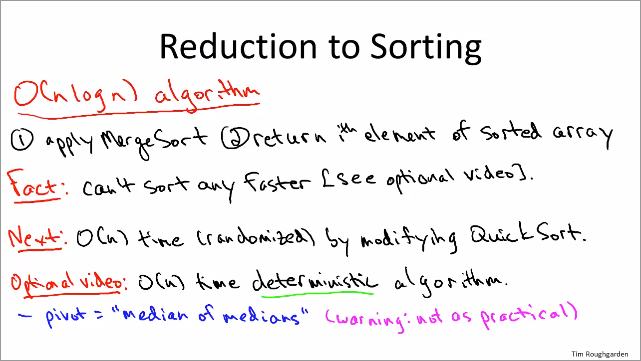 Reduction to Sorting
O(n log n) algorithm
① apply MergeSort ② return ith element of sorted array
Fact: can't sort any faster [see optional video].
Next: O(n) time (randomized) by modifying QuickSort.
Optional video: O(n) time deterministic algorithm.
- pivot = "median of medians" (warning: not as practical)
Tim Roughgarden